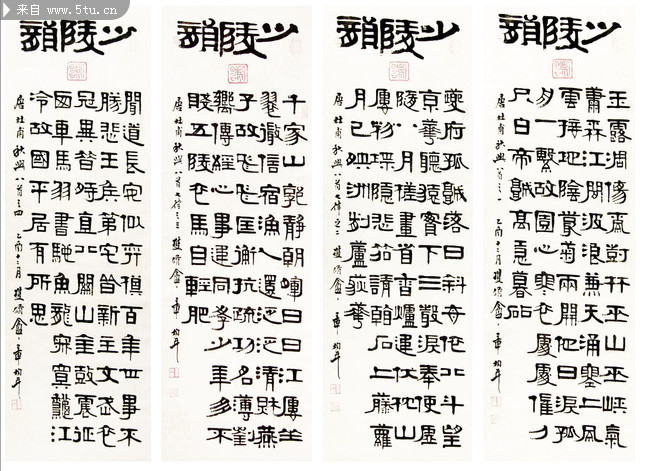 来自 www.5tu.cn
少陵
玉露凋傷楓樹林巫山巫峽氣
蕭森江間波浪兼天涌塞上風
雲接地陰叢菊兩開他日淚孤
舟一繫故園心寒衣處處催刀
尺白帝城高急暮砧
唐杜甫秋興八首之一 乙酉十二月
少陵
夔府孤城落日斜每依北斗望
京華聽猿實下三聲淚奉使虛
隨八月槎畫省香爐違伏枕山
樓粉堞隱悲笳請看石上藤蘿
月已映洲前蘆荻華
唐杜甫秋興八首七律之二
少陵
千家山郭靜朝暉日日江樓坐
翠微信宿漁人還泛泛清秋燕
子故飛飛匡衡抗疏功名薄劉
嚮傳經心事違同學少年多不
賤五陵衣馬自輕肥
唐杜甫秋興八首七律之三
少陵
聞道長安似弈棋百年世事不
勝悲王侯第宅皆新主文武衣
冠異昔時直北關山金鼓震征
西車馬羽書馳魚龍寂寞秋江
冷故國平居有所思
唐杜甫秋興八首之四 乙酉十二月